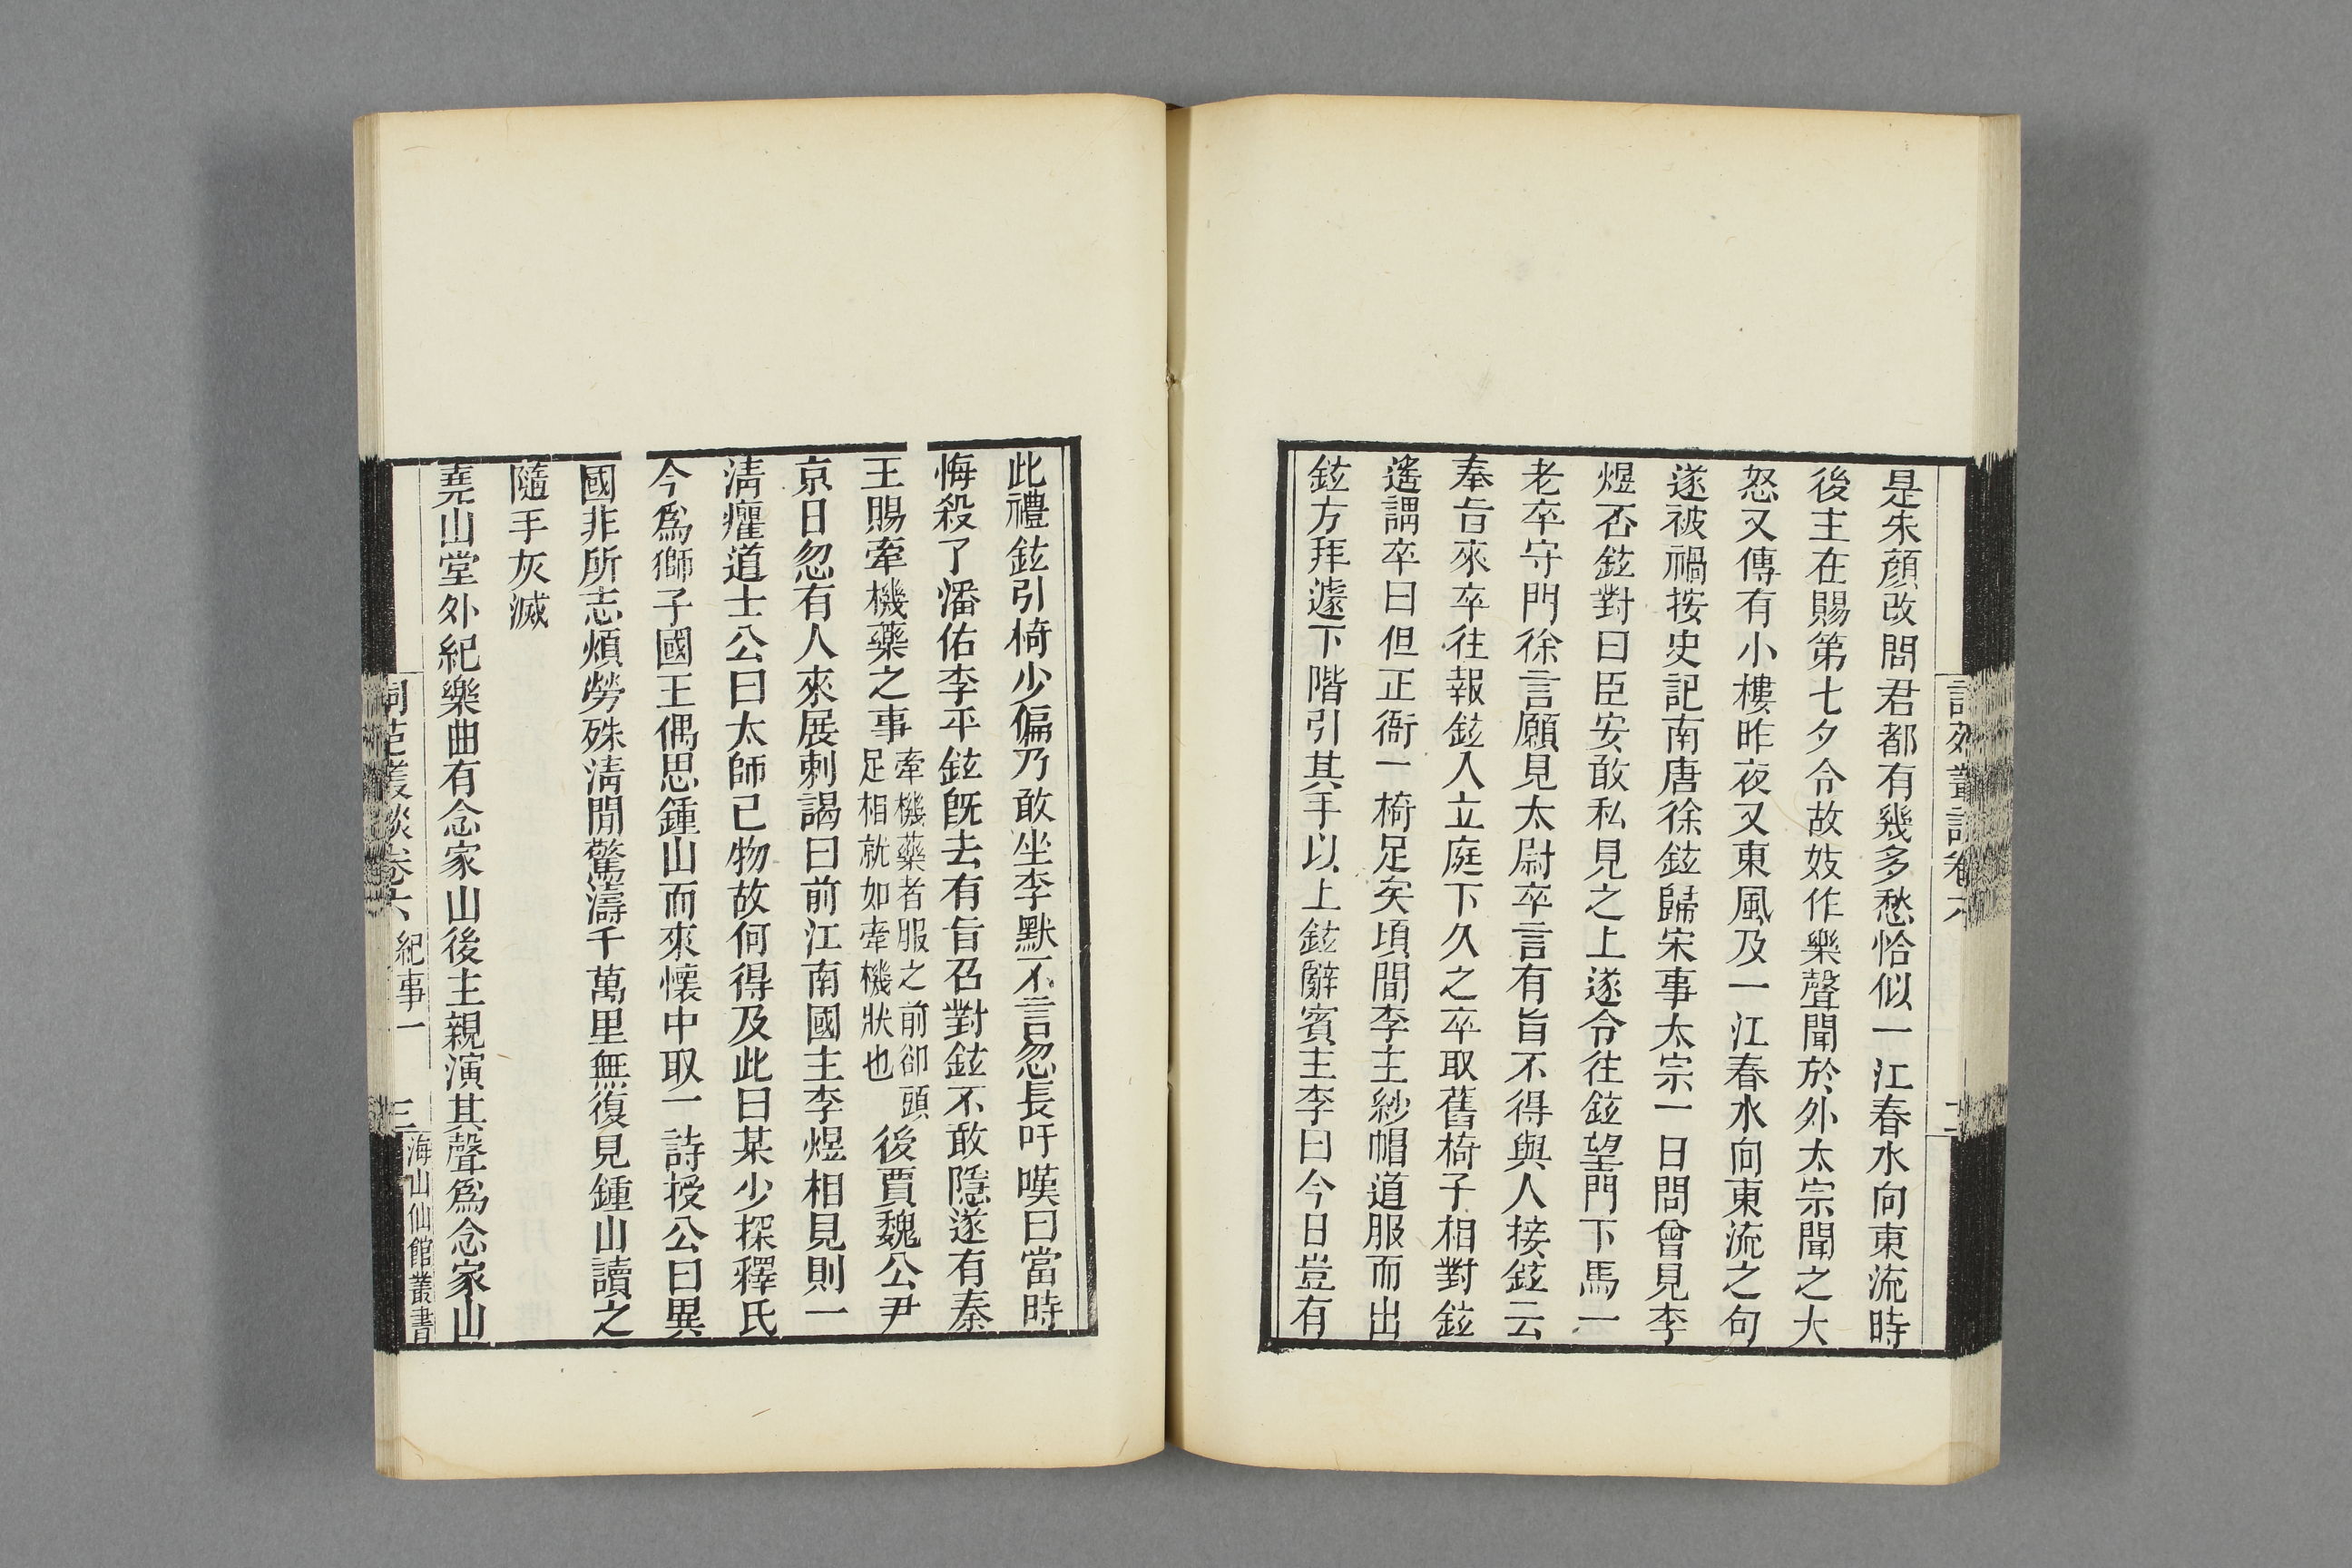 是朱顏改問君都有幾多愁恰似一江春水向東流時
後主在賜第七夕令故妓作樂聲聞於外太宗聞之大
怒又傳有小樓昨夜又東風及一江春水向東流之句
遂被禍按史記南唐徐鉉歸宋事太宗一日問曾見李
煜否鉉對曰臣安敢私見之上遂令往鉉望門下馬一
老卒守門徐言願見太尉卒言有旨不得與人接鉉云
奉旨來卒往報鉉入立庭下久之卒取舊椅子相對鉉
遙謂卒曰但正衙一椅足矣頃間李主紗帽道服而出
鉉方拜遽下階引其手以上鉉辭賓主李曰今日豈有
此禮鉉引椅少偏乃敢坐李默不言忽長吁嘆曰當時
悔殺了潘佑李平鉉旣去有旨召對鉉不敢隱遂有秦
王賜牽機藥之事牽機藥者服之前卻頭足相就如牽機狀也後賈魏公尹
京日忽有人來展刺謁曰前江南國主李煜相見則一
淸癯道士公曰太師已物故何得及此曰某少探釋氏
今爲獅子國王偶思鍾山而來懷中取一詩授公曰異
國非所志煩勞殊淸閒驚濤千萬里無復見鍾山讀之
隨手灰滅
堯山堂外紀樂曲有念家山後主親演其聲爲念家山
詞苑叢談卷六 紀事一 三 海山仙館叢書